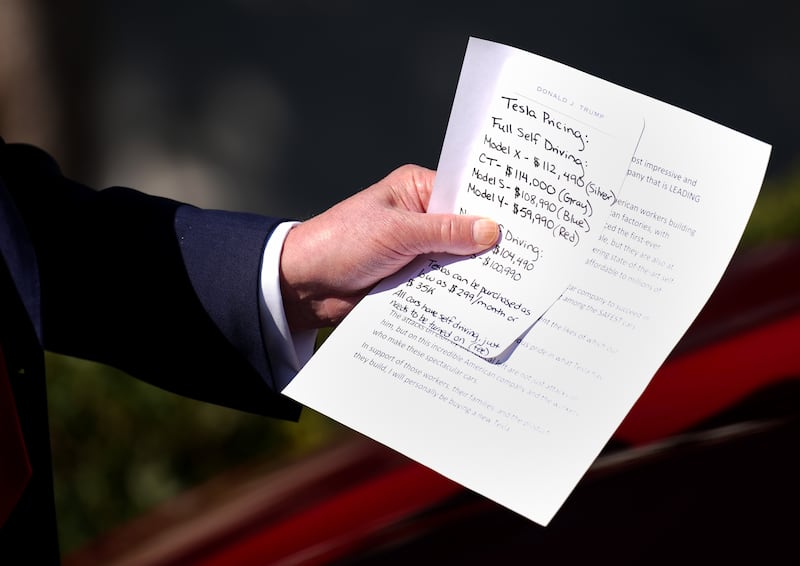 DONALD J. TRUMP
Tesla Pricing:
Full Self Driving:
Model X - $112,490 (Silver)
CT - $114,000 (Gray)
Model S - $108,990 (Blue)
Model Y - $59,990 (Red)
Driving:
$104,490
- $100,990
Teslas can be purchased as
low as $299/month or
$35K
All cars have self driving, just
needs to be turned on (fee)
ost impressive and
pany that is LEADING
erican workers building
can factories, with
ced the first-ever
ble, but they are also at
ering state of the art self
affordable to millions of
car company to succeed in
among the SAFEST cars
nt the likes of which our
pride in what Tesla has
The attacks on are not just attacks on
him, but on this incredible American company and the workers
who make these spectacular cars.
In support of those workers, their families, and the product
they build, I will personally be buying a new Tesla